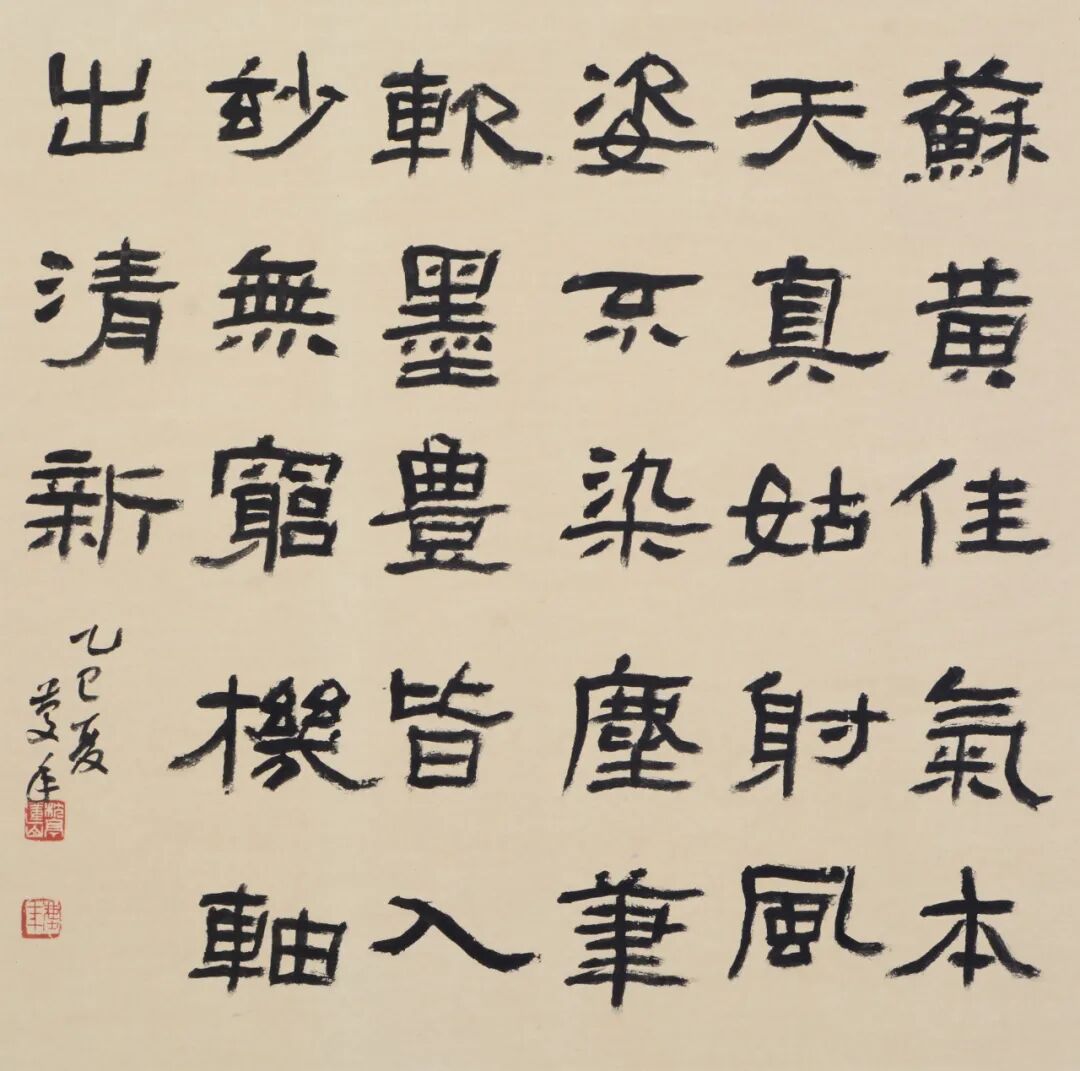 蘇黄佳氣本
天真姑射風
姿不染塵筆
軟墨豊皆入
玅無窮機軸
出清新
乙巳夏